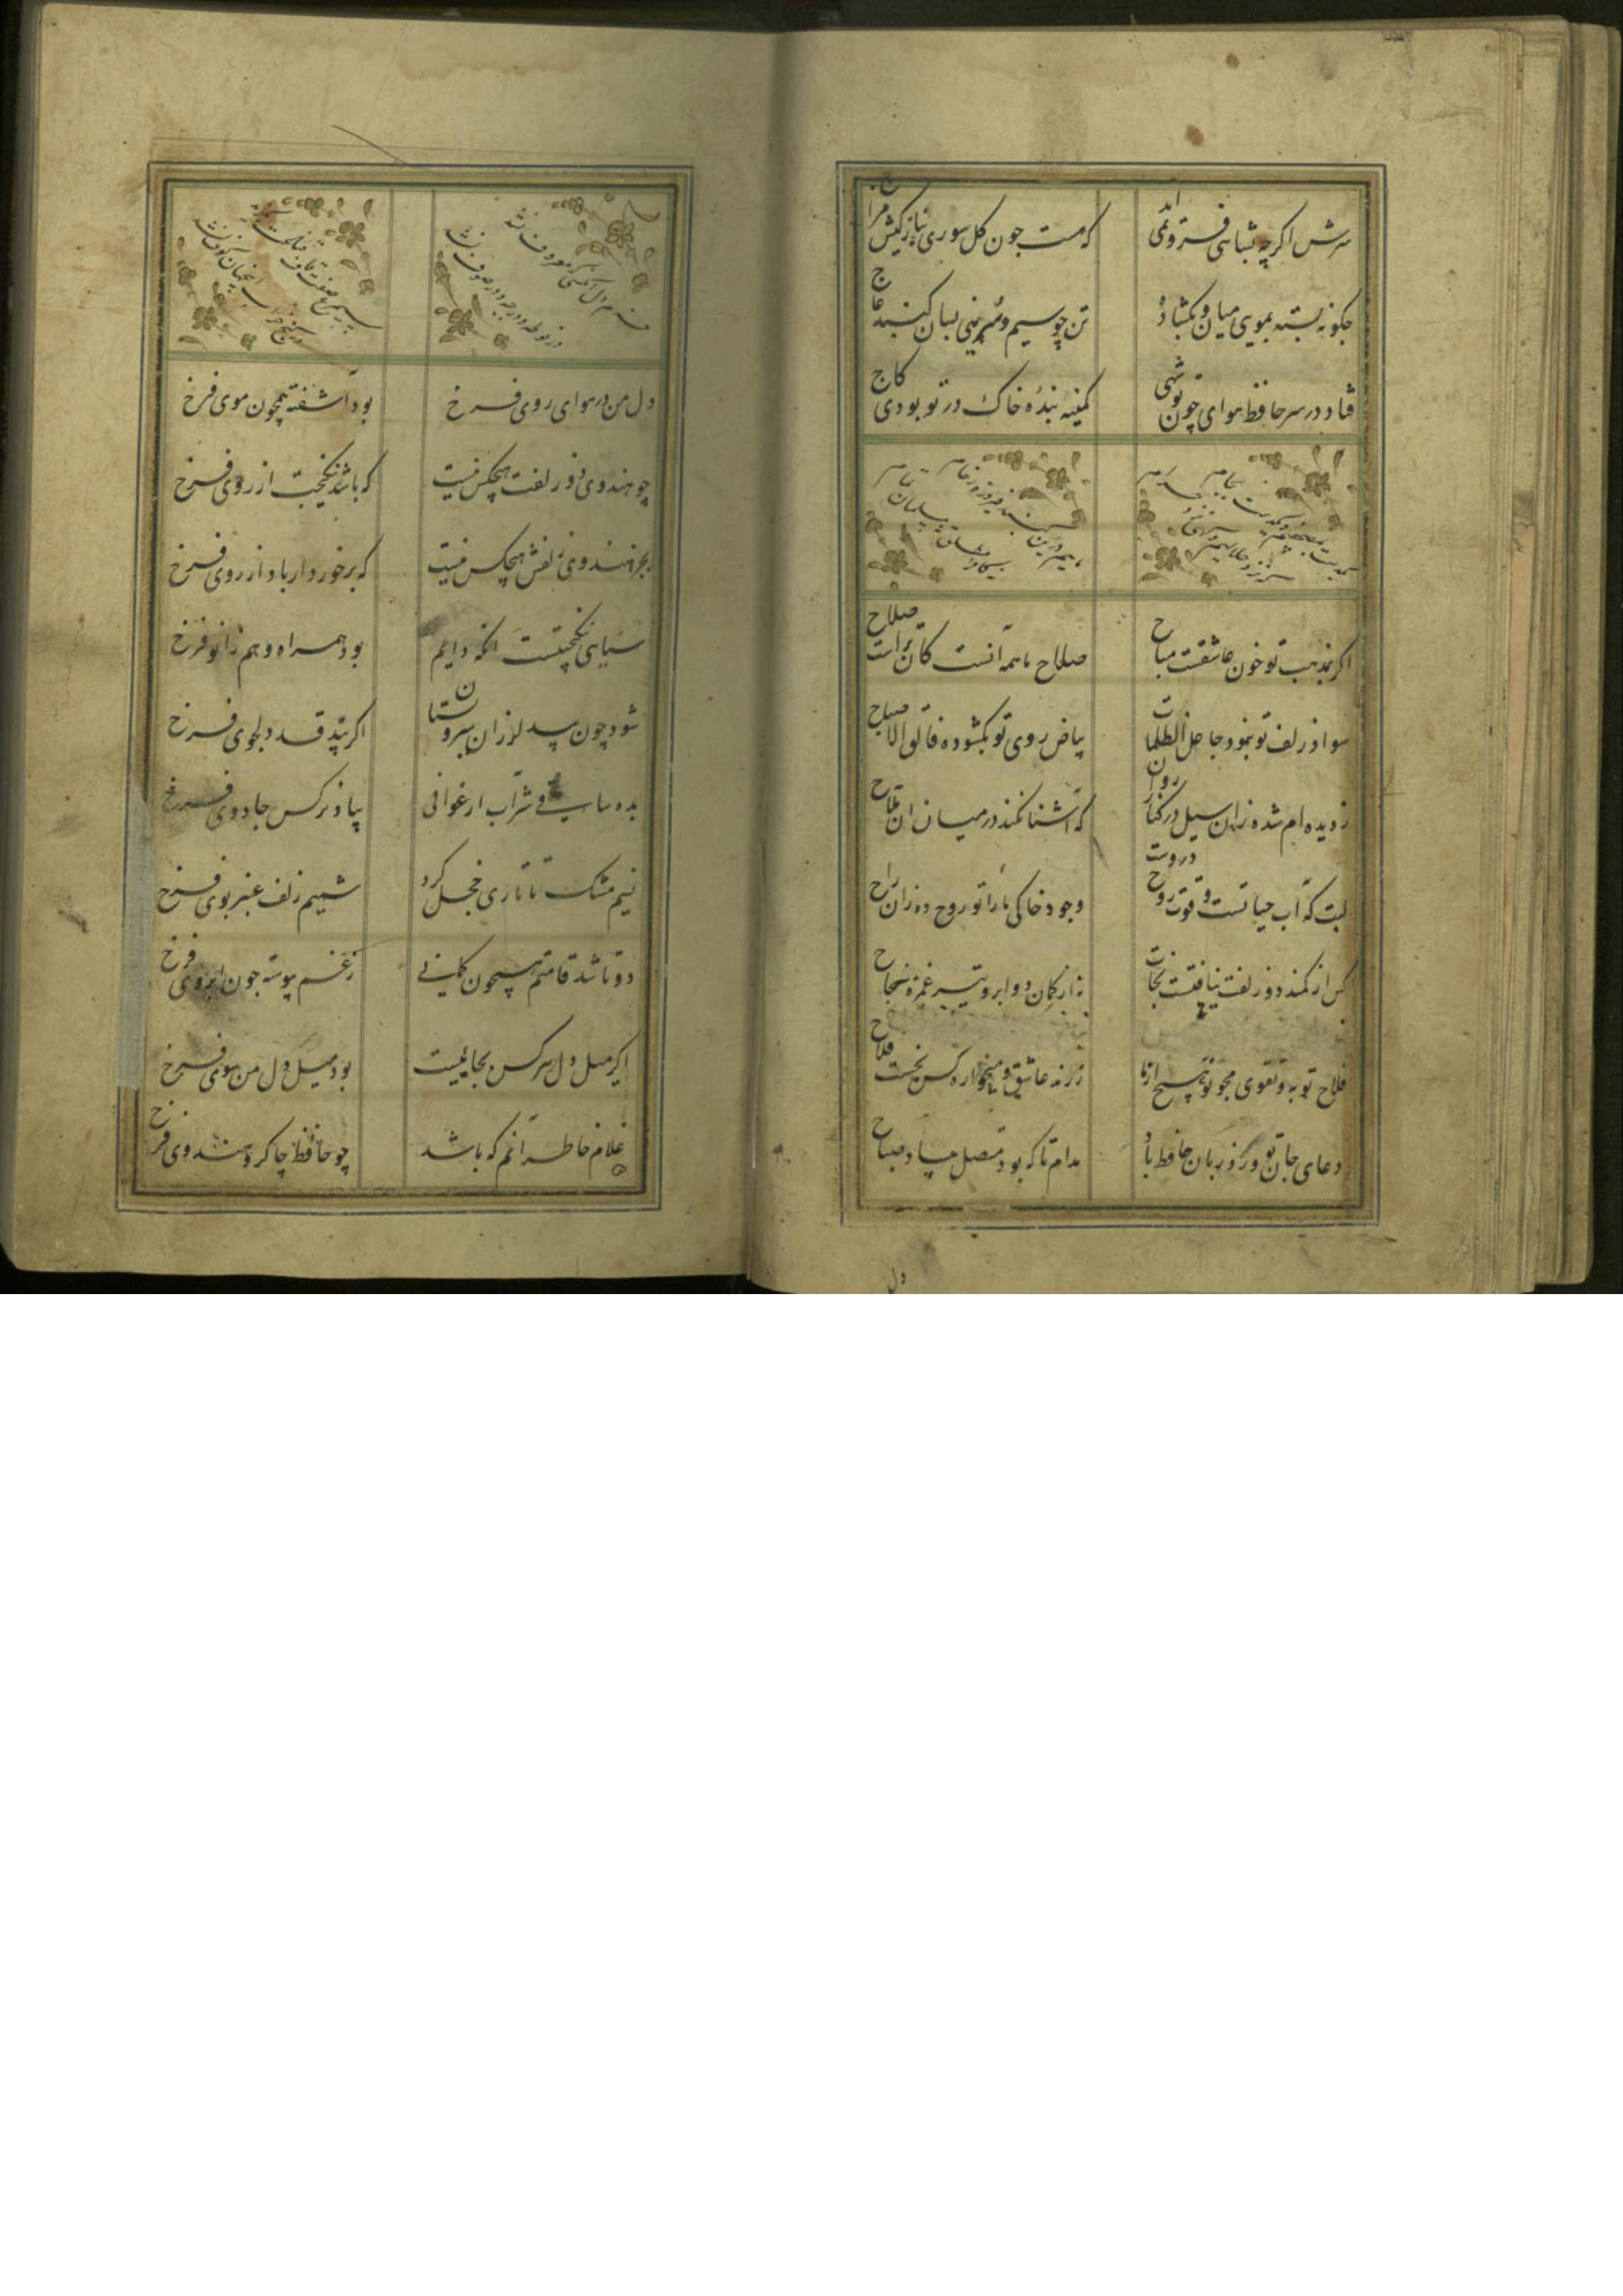 سرش اکر چه بشاهی فرو نمی اند
که مست جون کل سوری بناز کیش مزاج
جکونه بسته بمویی میان و بکشاد
تن چو سیم و سرینی بسان کنبد عاج
فتاد در سر حافظ هوای چون تو شهی
کمینه بنده خاک در تو بودی کاج
اکر بمذهب تو خون عاشقست مباح
صلاح ما همه آنست کان تراست صلاح
سواد زلف تو بنمود جاعل الظلمات
بیاض روی تو بکشود فالق الاصباح
ز دیده ام شده زان سیل در کنار روان
که آشنا نکند در میان ان ملاح
لبت که آب حیاتست و قوت روح دروست
وجود خاکی ما را تو روح ده زان راح
کس از کمند دو زلفت نیافتست نجات
نه از کمان دو ابرو و تیر غمزه نجاح
فلاح توبه و تقوی مجو تو هیچ از ما
ز رند عاشق و میخواره کس نجست فلاح
دعای جان تو ورد زبان حافظ باد
مدام تا که بود متصل مسا و صباح
دل
دل من در هوای روی فرخ
بود آشفته همچون موی فرخ
چو هندوی دو زلفت هیچکس نیست
که باشد نیکبخت از روی فرخ
بجز هندوی زلفش هیچکس نیست
که برخوردار باد از روی فرخ
سیاهی نیکبختست انکه دایم
بود همراه و هم زانو فرخ
شود چون بید لرزان سرو بستان
اکر بیند قد دلجوی فرخ
بده ساقی شراب ارغوانی
بیاد نرکس جادوی فرخ
نسیم مشک تاتاری خجل کرد
شمیم زلف عنبر بوی فرخ
دو تا شد قامتم همچون کمانی
ز غم پیوسته جون ابروی فرخ
اکر میل دل هر کس بجاییست
بود میل دل من سوی فرخ
غلام خاطر آنم که باشد
چو حافظ چاکر و هندوی فرخ